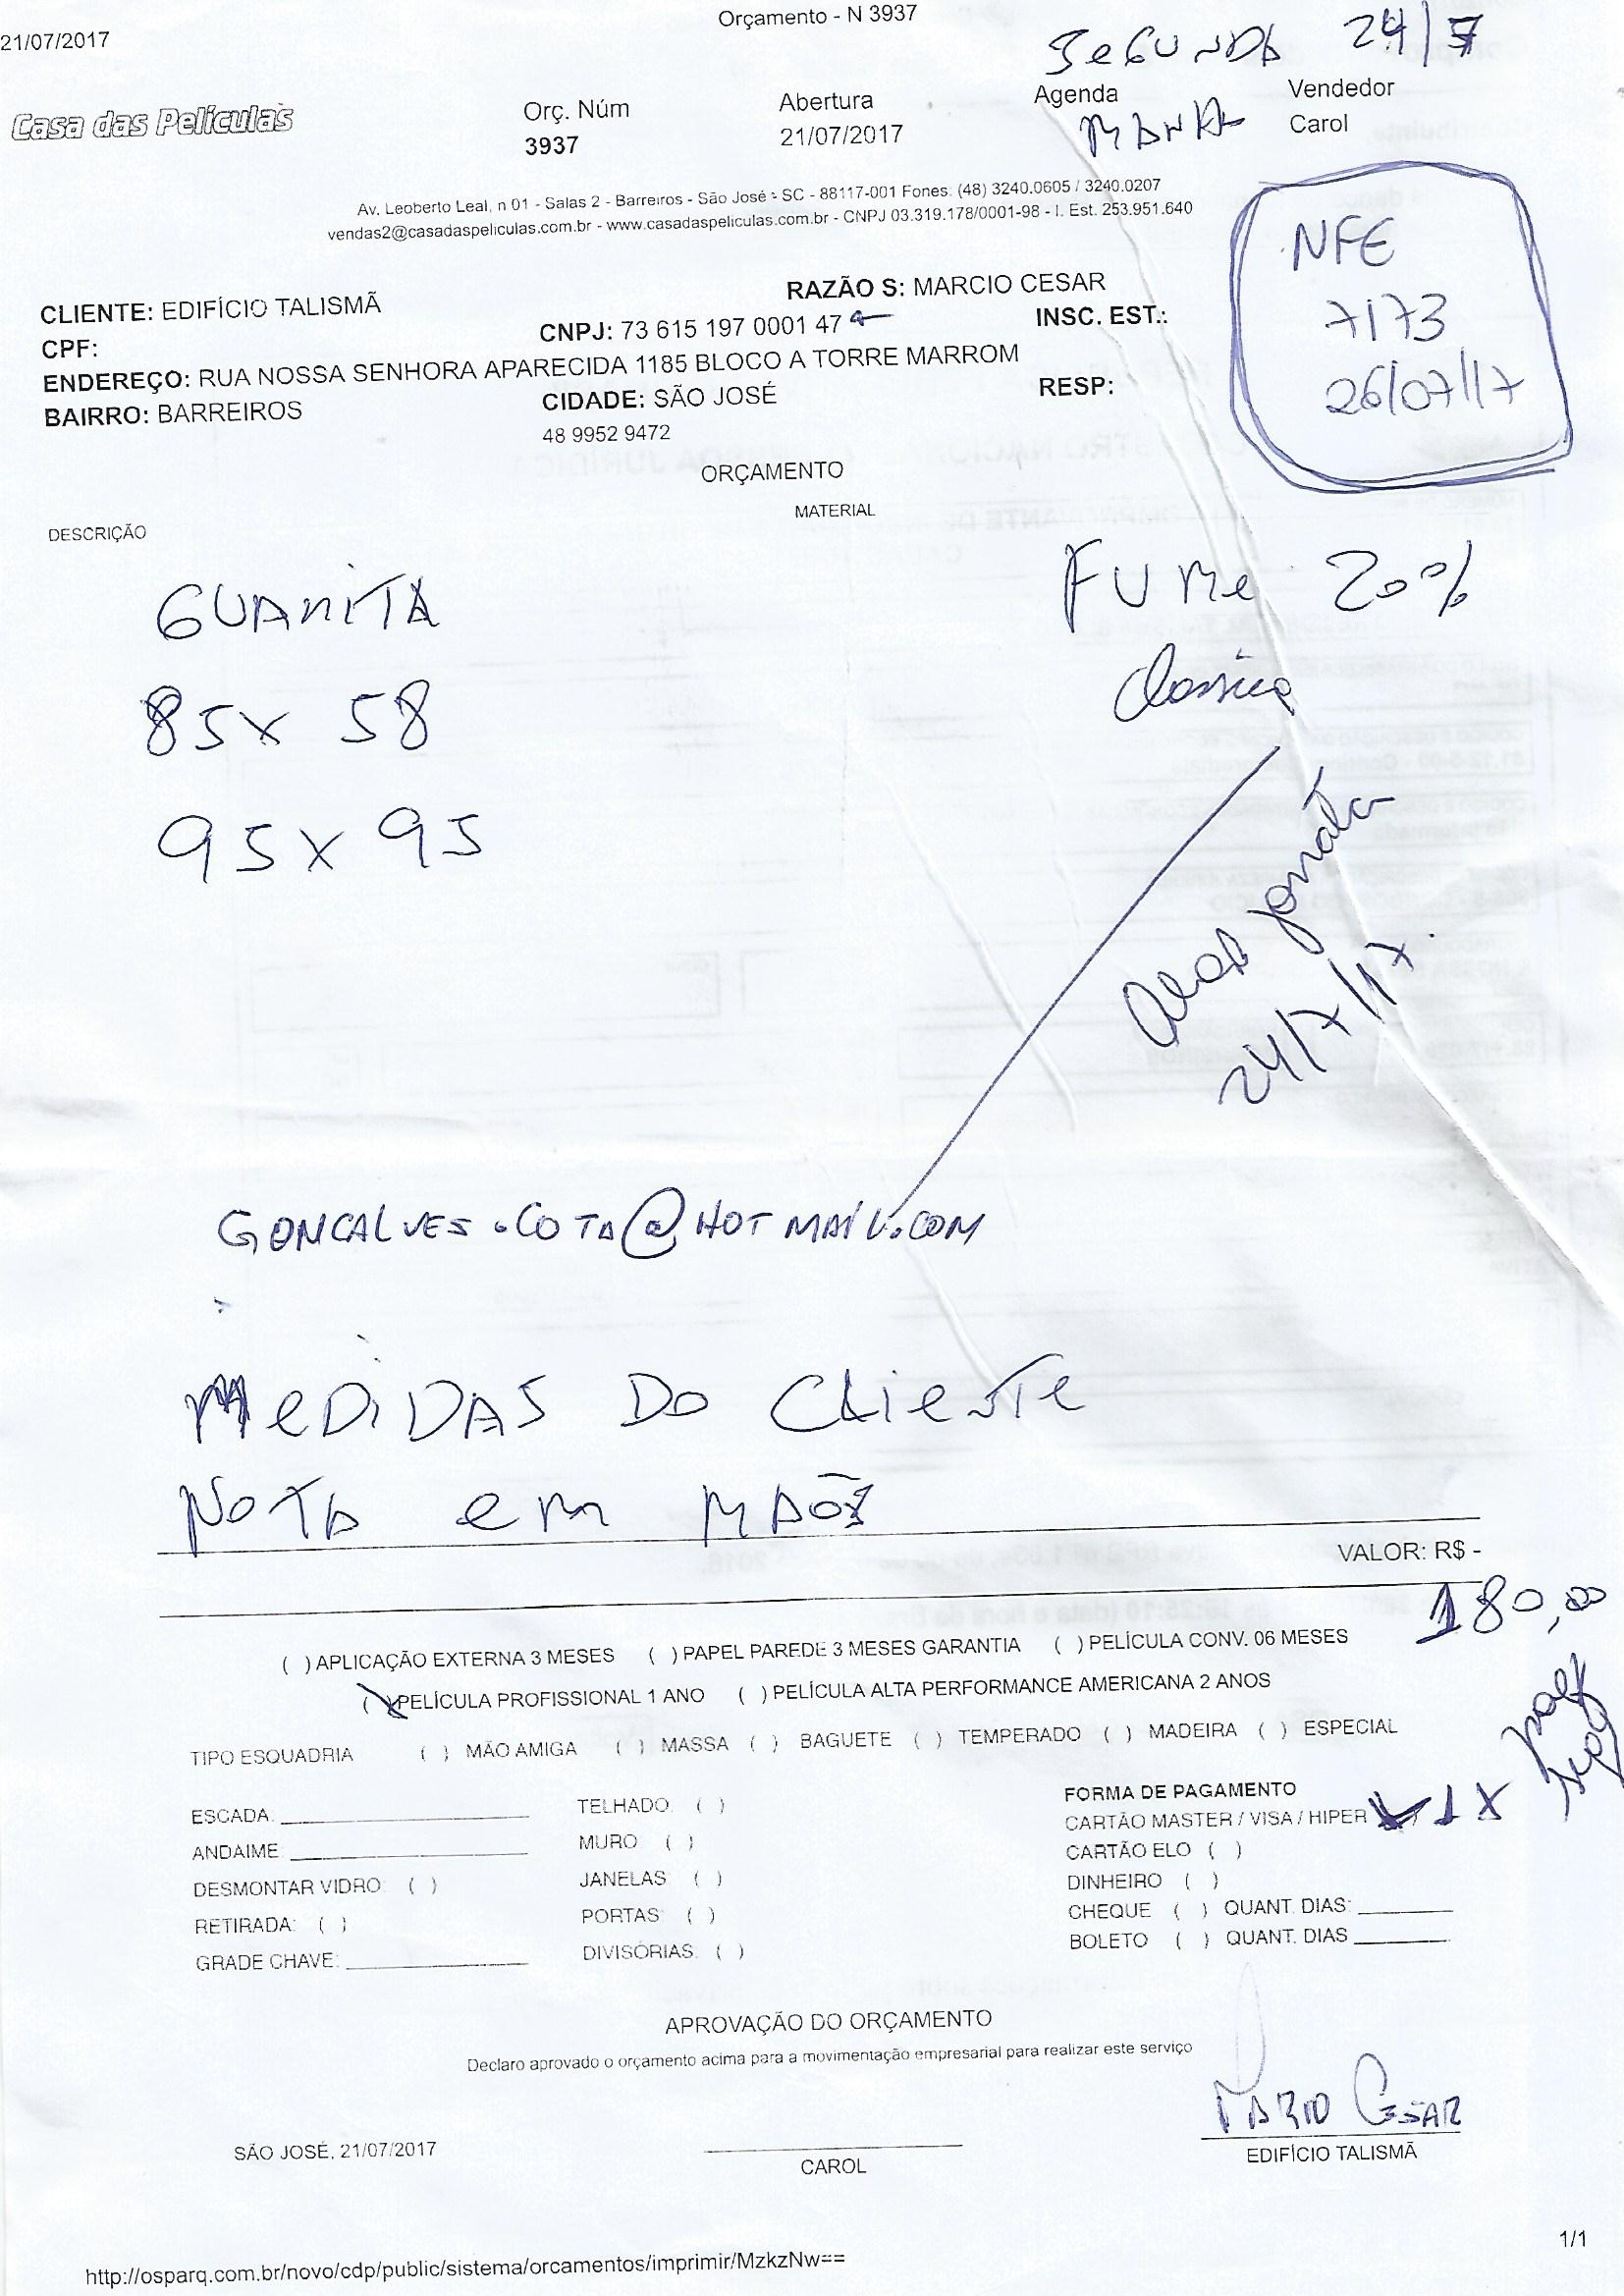 Orçamento - N 3937
21/07/2017
SEGUNDA 24/7
Casa das Películas
Orç. Núm
3937
Abertura
21/07/2017
Agenda
Vendedor
Carol
Av. Leoberto Leal, n 01 - Salas 2 - Barreiros - São José - SC - 88117-001 Fones: (48) 3240.0605 / 3240.0207
vendas2@casadaspeliculas.com.br - www.casadaspeliculas.com.br - CNPJ 03.319.178/0001-98 - I. Est. 253.951.640
NFE
7173
26/07/17
CLIENTE: EDIFÍCIO TALISMÃ
RAZÃO S: MARCIO CESAR
CPF:
CNPJ: 73 615 197 0001 47
INSC. EST.:
ENDEREÇO: RUA NOSSA SENHORA APARECIDA 1185 BLOCO A TORRE MARROM
BAIRRO: BARREIROS
CIDADE: SÃO JOSÉ
RESP:
48 9952 9472
ORÇAMENTO
DESCRIÇÃO
MATERIAL
GUARITA
FUME 20%
85 x 58
95 x 95
24/7/17.
GONCALVES.COTA@HOTMAIL.COM
MEDIDAS DO CLIENTE
NOTA EM MÃOS
VALOR: R$ -
180,00
( ) APLICAÇÃO EXTERNA 3 MESES ( ) PAPEL PAREDE 3 MESES GARANTIA ( ) PELÍCULA CONV. 06 MESES
(X) PELÍCULA PROFISSIONAL 1 ANO ( ) PELÍCULA ALTA PERFORMANCE AMERICANA 2 ANOS
TIPO ESQUADRIA ( ) MÃO AMIGA ( ) MASSA ( ) BAGUETE ( ) TEMPERADO ( ) MADEIRA ( ) ESPECIAL
ESCADA:
TELHADO: ( )
FORMA DE PAGAMENTO
CARTÃO MASTER / VISA / HIPER 1 X
ANDAIME:
MURO ( )
CARTÃO ELO ( )
DESMONTAR VIDRO: ( )
JANELAS: ( )
DINHEIRO ( )
RETIRADA: ( )
PORTAS: ( )
CHEQUE ( ) QUANT. DIAS:
GRADE CHAVE:
DIVISÓRIAS: ( )
BOLETO ( ) QUANT. DIAS
APROVAÇÃO DO ORÇAMENTO
Declaro aprovado o orçamento acima para a movimentação empresarial para realizar este serviço
CESAR
SÃO JOSÉ, 21/07/2017
CAROL
EDIFÍCIO TALISMÃ
1/1
http://osparq.com.br/novo/cdp/public/sistema/orcamentos/imprimir/MzkzNw==